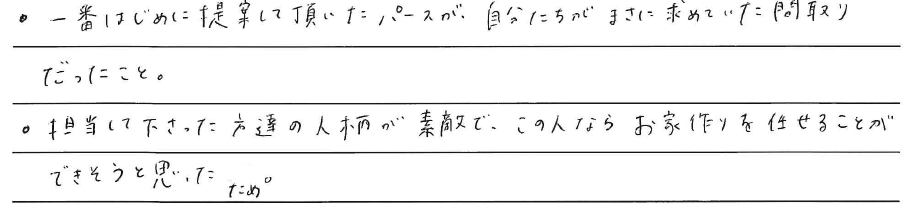 。一番はじめに提案して頂いたパースが、自分たちがまさに求めていた間取り
だったこと。
。担当して下さった方達の人柄が素敵で、この人なら お家作りを任せることが
できそうと思ったため。